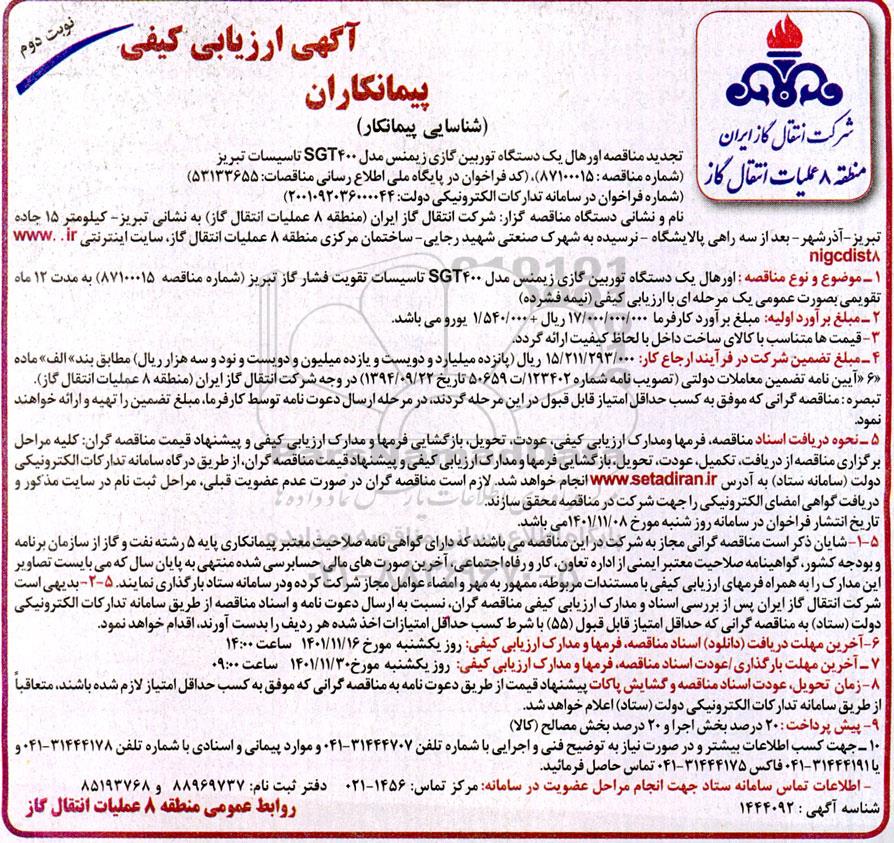 نوبت دوم
آگهی ارزیابی کیفی
پیمانکاران
(شناسایی پیمانکار)
شرکت انتقال گاز ایران
منطقه ۸ عملیات انتقال گاز
تجدید مناقصه اورهال یک دستگاه توربین گازی زیمنس مدل SGT۴۰۰ تاسیسات تبریز
(شماره مناقصه: ۸۷۱۰۰۰۱۵)، (کد فراخوان در پایگاه ملی اطلاع رسانی مناقصات: ۵۳۱۳۳۶۵۵)
(شماره فراخوان در سامانه تدارکات الکترونیکی دولت: ۲۰۰۱۰۹۲۰۳۶۰۰۰۰۴۴)
نام و نشانی دستگاه مناقصه گزار: شرکت انتقال گاز ایران (منطقه ۸ عملیات انتقال گاز) به نشانی تبریز- کیلومتر ۱۵ جاده
تبریز-آذرشهر- بعد از سه راهی پالایشگاه - نرسیده به شهرک صنعتی شهید رجایی- ساختمان مرکزی منطقه ۸ عملیات انتقال گاز، سایت اینترنتی www. .ir
nigcdist۸
۱ـ موضوع و نوع مناقصه : اورهال یک دستگاه توربین گازی زیمنس مدل SGT۴۰۰ تاسیسات تقویت فشار گاز تبریز (شماره مناقصه ۸۷۱۰۰۰۱۵) به مدت ۱۲ ماه
تقویمی بصورت عمومی یک مرحله ای با ارزیابی کیفی (نیمه فشرده)
۲ـ مبلغ برآورد اولیه: مبلغ برآورد کارفرما ۱۷/۰۰۰/۰۰۰/۰۰۰ ریال + ۱/۵۴۰/۰۰۰ یورو می باشد.
۳- قیمت ها متناسب با کالای ساخت داخل با لحاظ کیفیت ارائه گردد.
۴ـ مبلغ تضمین شرکت در فرآیند ارجاع کار: ۱۵/۲۱۱/۲۹۳/۰۰۰ ریال (پانزده میلیارد و دویست و یازده میلیون و دویست و نود و سه هزار ریال) مطابق بند»الف« ماده
«۶ »آیین نامه تضمین معاملات دولتی (تصویب نامه شماره ۱۲۳۴۰۲/ت ۵۰۶۵۹ تاریخ ۱۳۹۴/۰۹/۲۲) در وجه شرکت انتقال گاز ایران (منطقه ۸ عملیات انتقال گاز).
تبصره : مناقصه گرانی که موفق به کسب حداقل امتیاز قابل قبول در این مرحله گردند، در مرحله ارسال دعوت نامه توسط کارفرما، مبلغ تضمین را تهیه و ارائه خواهند
نمود.
۵ـ نحوه دریافت اسناد مناقصه، فرمها ومدارک ارزیابی کیفی، عودت، تحویل، بازگشایی فرمها و مدارک ارزیابی کیفی و پیشنهاد قیمت مناقصه گران: کلیه مراحل
برگزاری مناقصه از دریافت، تکمیل، عودت، تحویل، بازگشایی فرمها و مدارک ارزیابی کیفی و پیشنهاد قیمت مناقصه گران، از طریق درگاه سامانه تدارکات الکترونیکی
دولت (سامانه ستاد) به آدرس www.setadiran.ir انجام خواهد شد. لازم است مناقصه گران در صورت عدم عضویت قبلی، مراحل ثبت نام در سایت مذکور و
دریافت گواهی امضای الکترونیکی را جهت شرکت در مناقصه محقق سازند.
تاریخ انتشار فراخوان در سامانه روز شنبه مورخ ۱۴۰۱/۱۱/۰۸ می باشد.
۵-۱- شایان ذکر است مناقصه گرانی مجاز به شرکت در این مناقصه می باشند که دارای گواهی نامه صلاحیت معتبر پیمانکاری پایه ۵ رشته نفت و گاز از سازمان برنامه
و بودجه کشور، گواهینامه صلاحیت معتبر ایمنی از اداره تعاون، کار و رفاه اجتماعی، آخرین صورت های مالی حسابرسی شده منتهی به پایان سال که می بایست تصاویر
این مدارک را به همراه فرمهای ارزیابی کیفی با مستندات مربوطه، ممهور به مهر و امضاء عوامل مجاز شرکت کرده ودر سامانه ستاد بارگذاری نمایند. ۵-۲- بدیهی است
شرکت انتقال گاز ایران پس از بررسی اسناد و مدارک ارزیابی کیفی مناقصه گران، نسبت به ارسال دعوت نامه و اسناد مناقصه از طریق سامانه تدارکات الکترونیکی
دولت (ستاد) به مناقصه گرانی که حداقل امتیاز قابل قبول (۵۵) با شرط کسب حداقل امتیازات اخذ شده هر ردیف را بدست آورند، اقدام خواهد نمود.
۶-آخرین مهلت دریافت (دانلود) اسناد مناقصه، فرمها و مدارک ارزیابی کیفی: روز یکشنبه مورخ ۱۴۰۱/۱۱/۱۶ ساعت ۱۴:۰۰
۷ـ آخرین مهلت بارگذاری /عودت اسناد مناقصه، فرمها و مدارک ارزیابی کیفی: روز یکشنبه مورخ ۱۴۰۱/۱۱/۳۰ ساعت ۰۹:۰۰
۸- زمان تحویل، عودت اسناد مناقصه و گشایش پاکات پیشنهاد قیمت از طریق دعوت نامه به مناقصه گرانی که موفق به کسب حداقل امتیاز لازم شده باشند، متعاقباً
از طریق سامانه تدارکات الکترونیکی دولت (ستاد) اعلام خواهد شد.
۹- پیش پرداخت : ۲۰ درصد بخش اجرا و ۲۰ درصد بخش مصالح (کالا)
۱۰ـ جهت کسب اطلاعات بیشتر و در صورت نیاز به توضیح فنی و اجرایی با شماره تلفن ۳۱۴۴۴۷۰۷-۰۴۱ و موارد پیمانی و اسنادی با شماره تلفن ۳۱۴۴۴۱۷۸-۰۴۱ و
یا ۳۱۴۴۴۱۹۱-۰۴۱ فاکس ۳۱۴۴۴۱۷۵-۰۴۱ تماس حاصل فرمائید.
- اطلاعات تماس سامانه ستاد جهت انجام مراحل عضویت در سامانه: مرکز تماس: ۱۴۵۶-۰۲۱ دفتر ثبت نام: ۸۸۹۶۹۷۳۷ و ۸۵۱۹۳۷۶۸
شناسه آگهی : ۱۴۴۴۰۹۲
روابط عمومی منطقه ۸ عملیات انتقال گاز